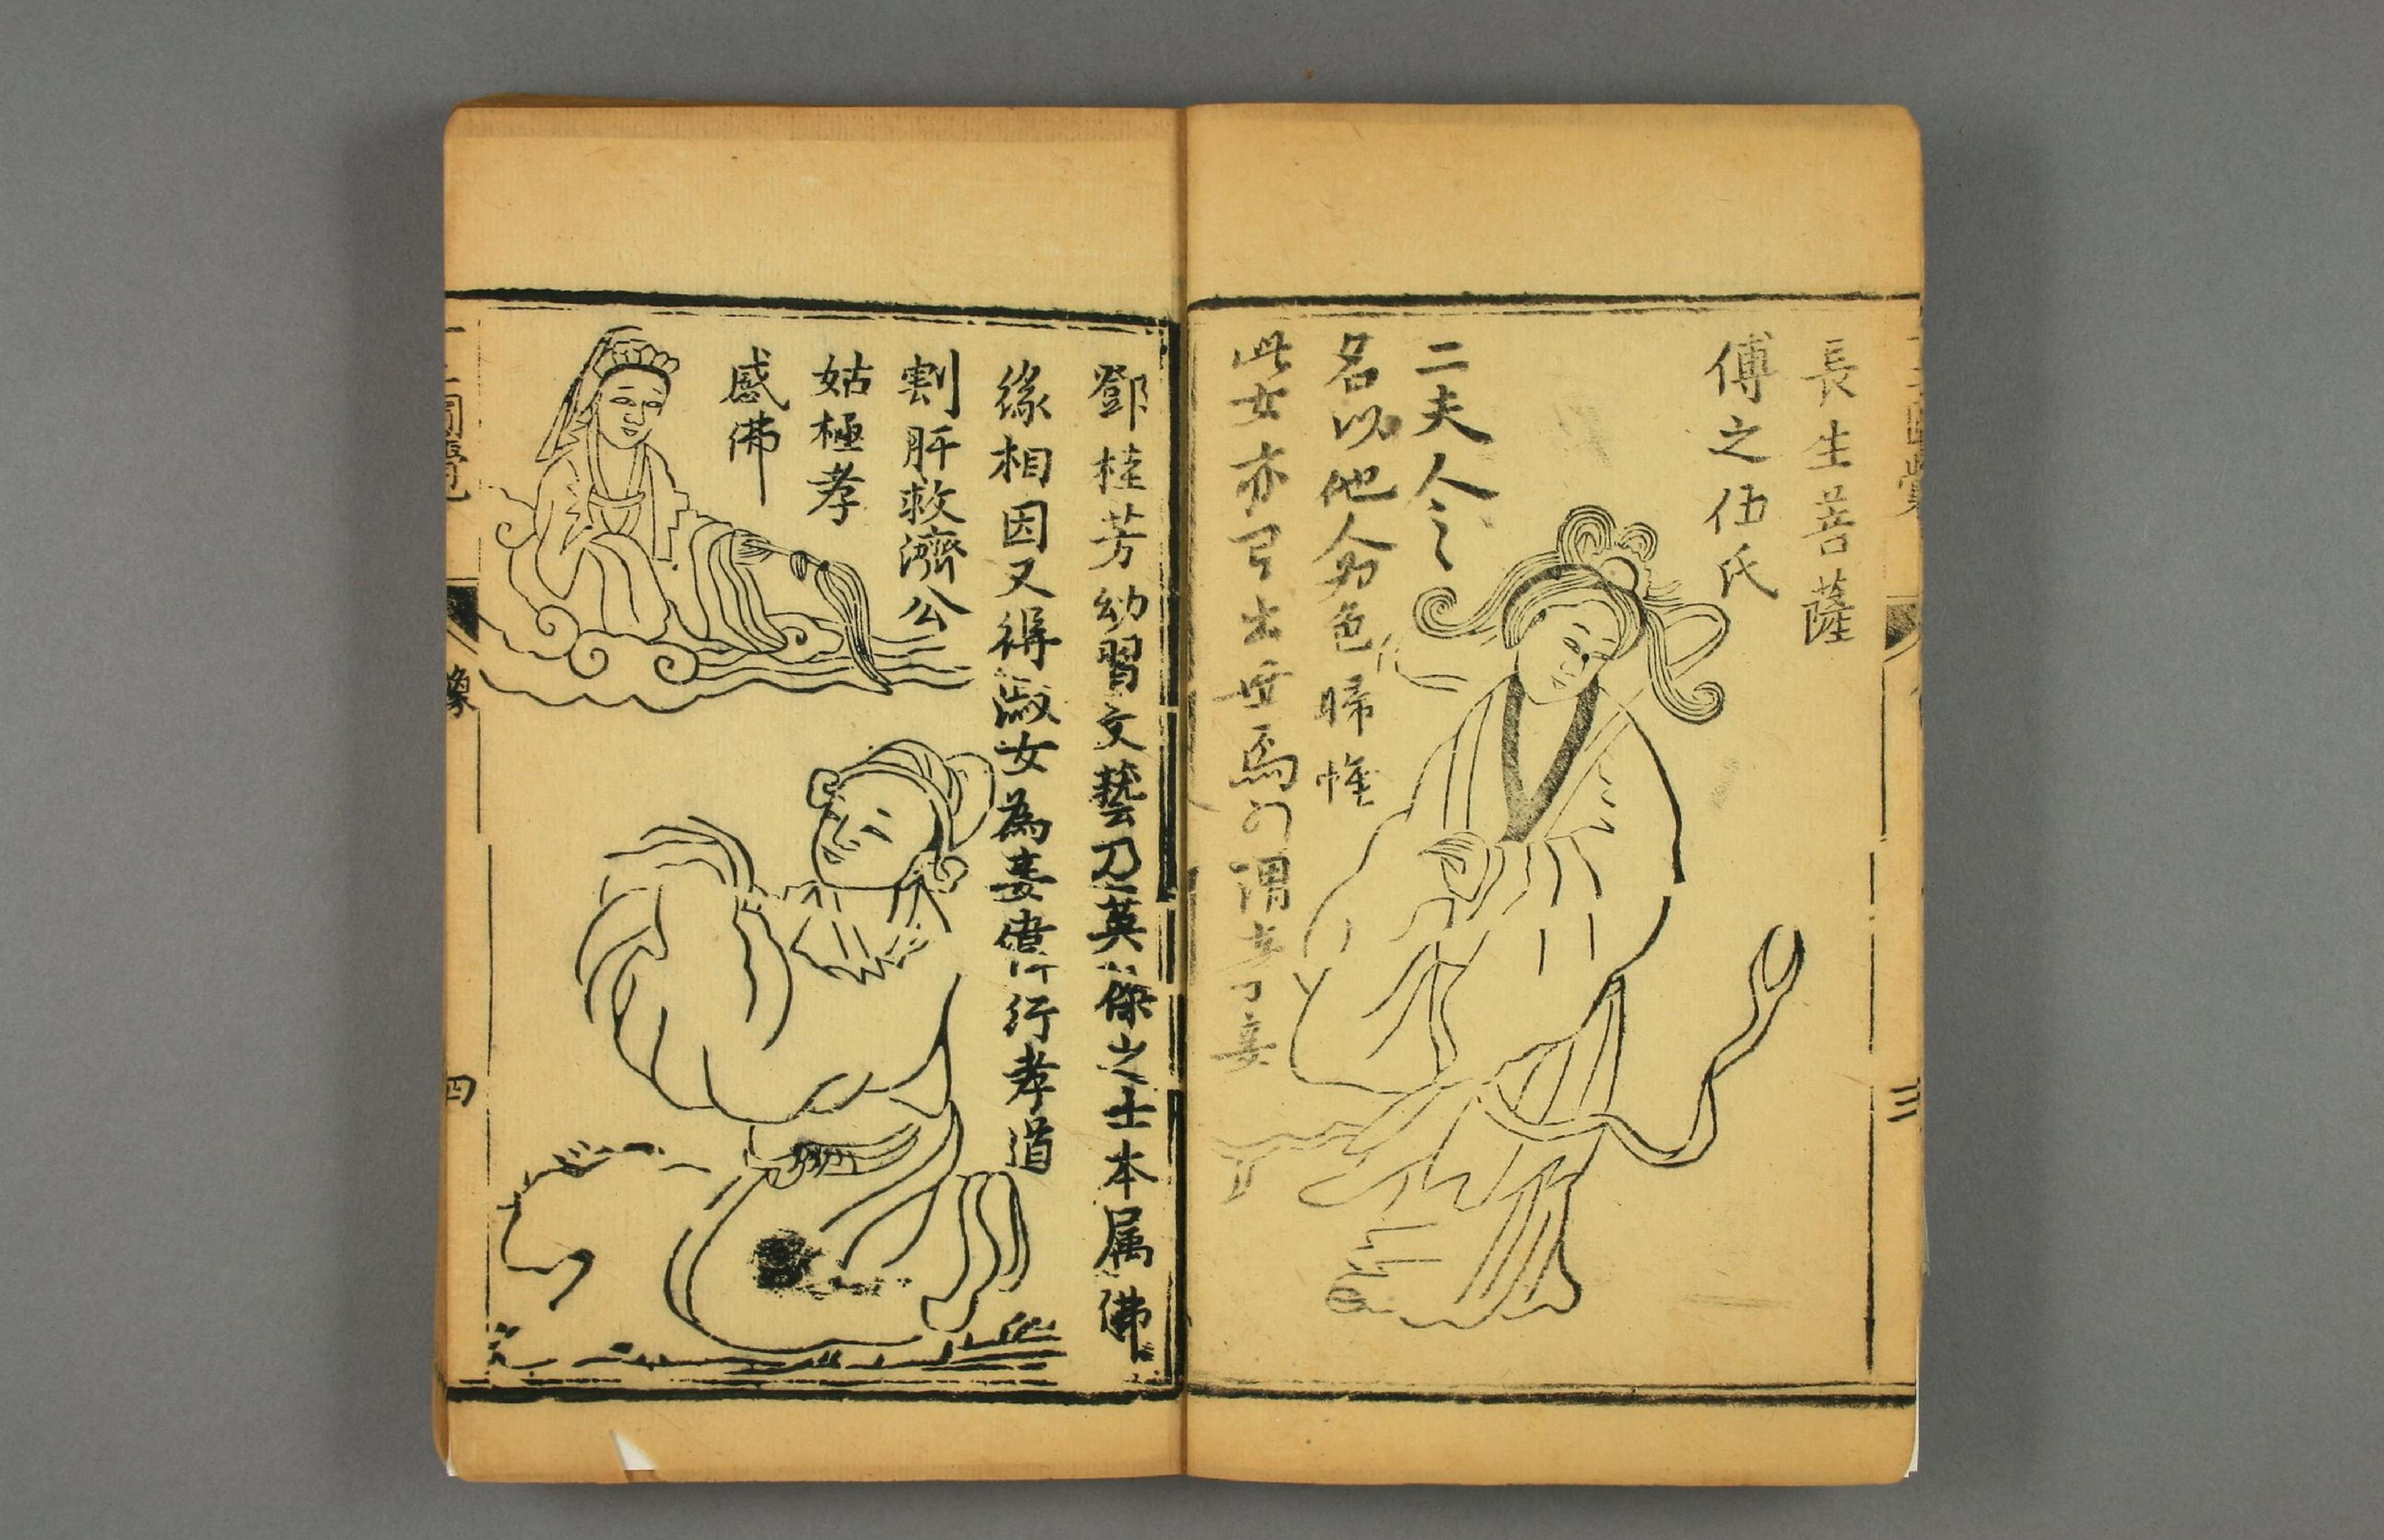 長生菩薩
傅之伍氏
二夫人
名以他為色歸帷
此女亦出世為謂
三
鄧桂芳幼習文藝乃英傑之士本属佛
緣相因又得淑女為妻偉行孝道
割肝救濟公
姑極孝
感佛
像
四